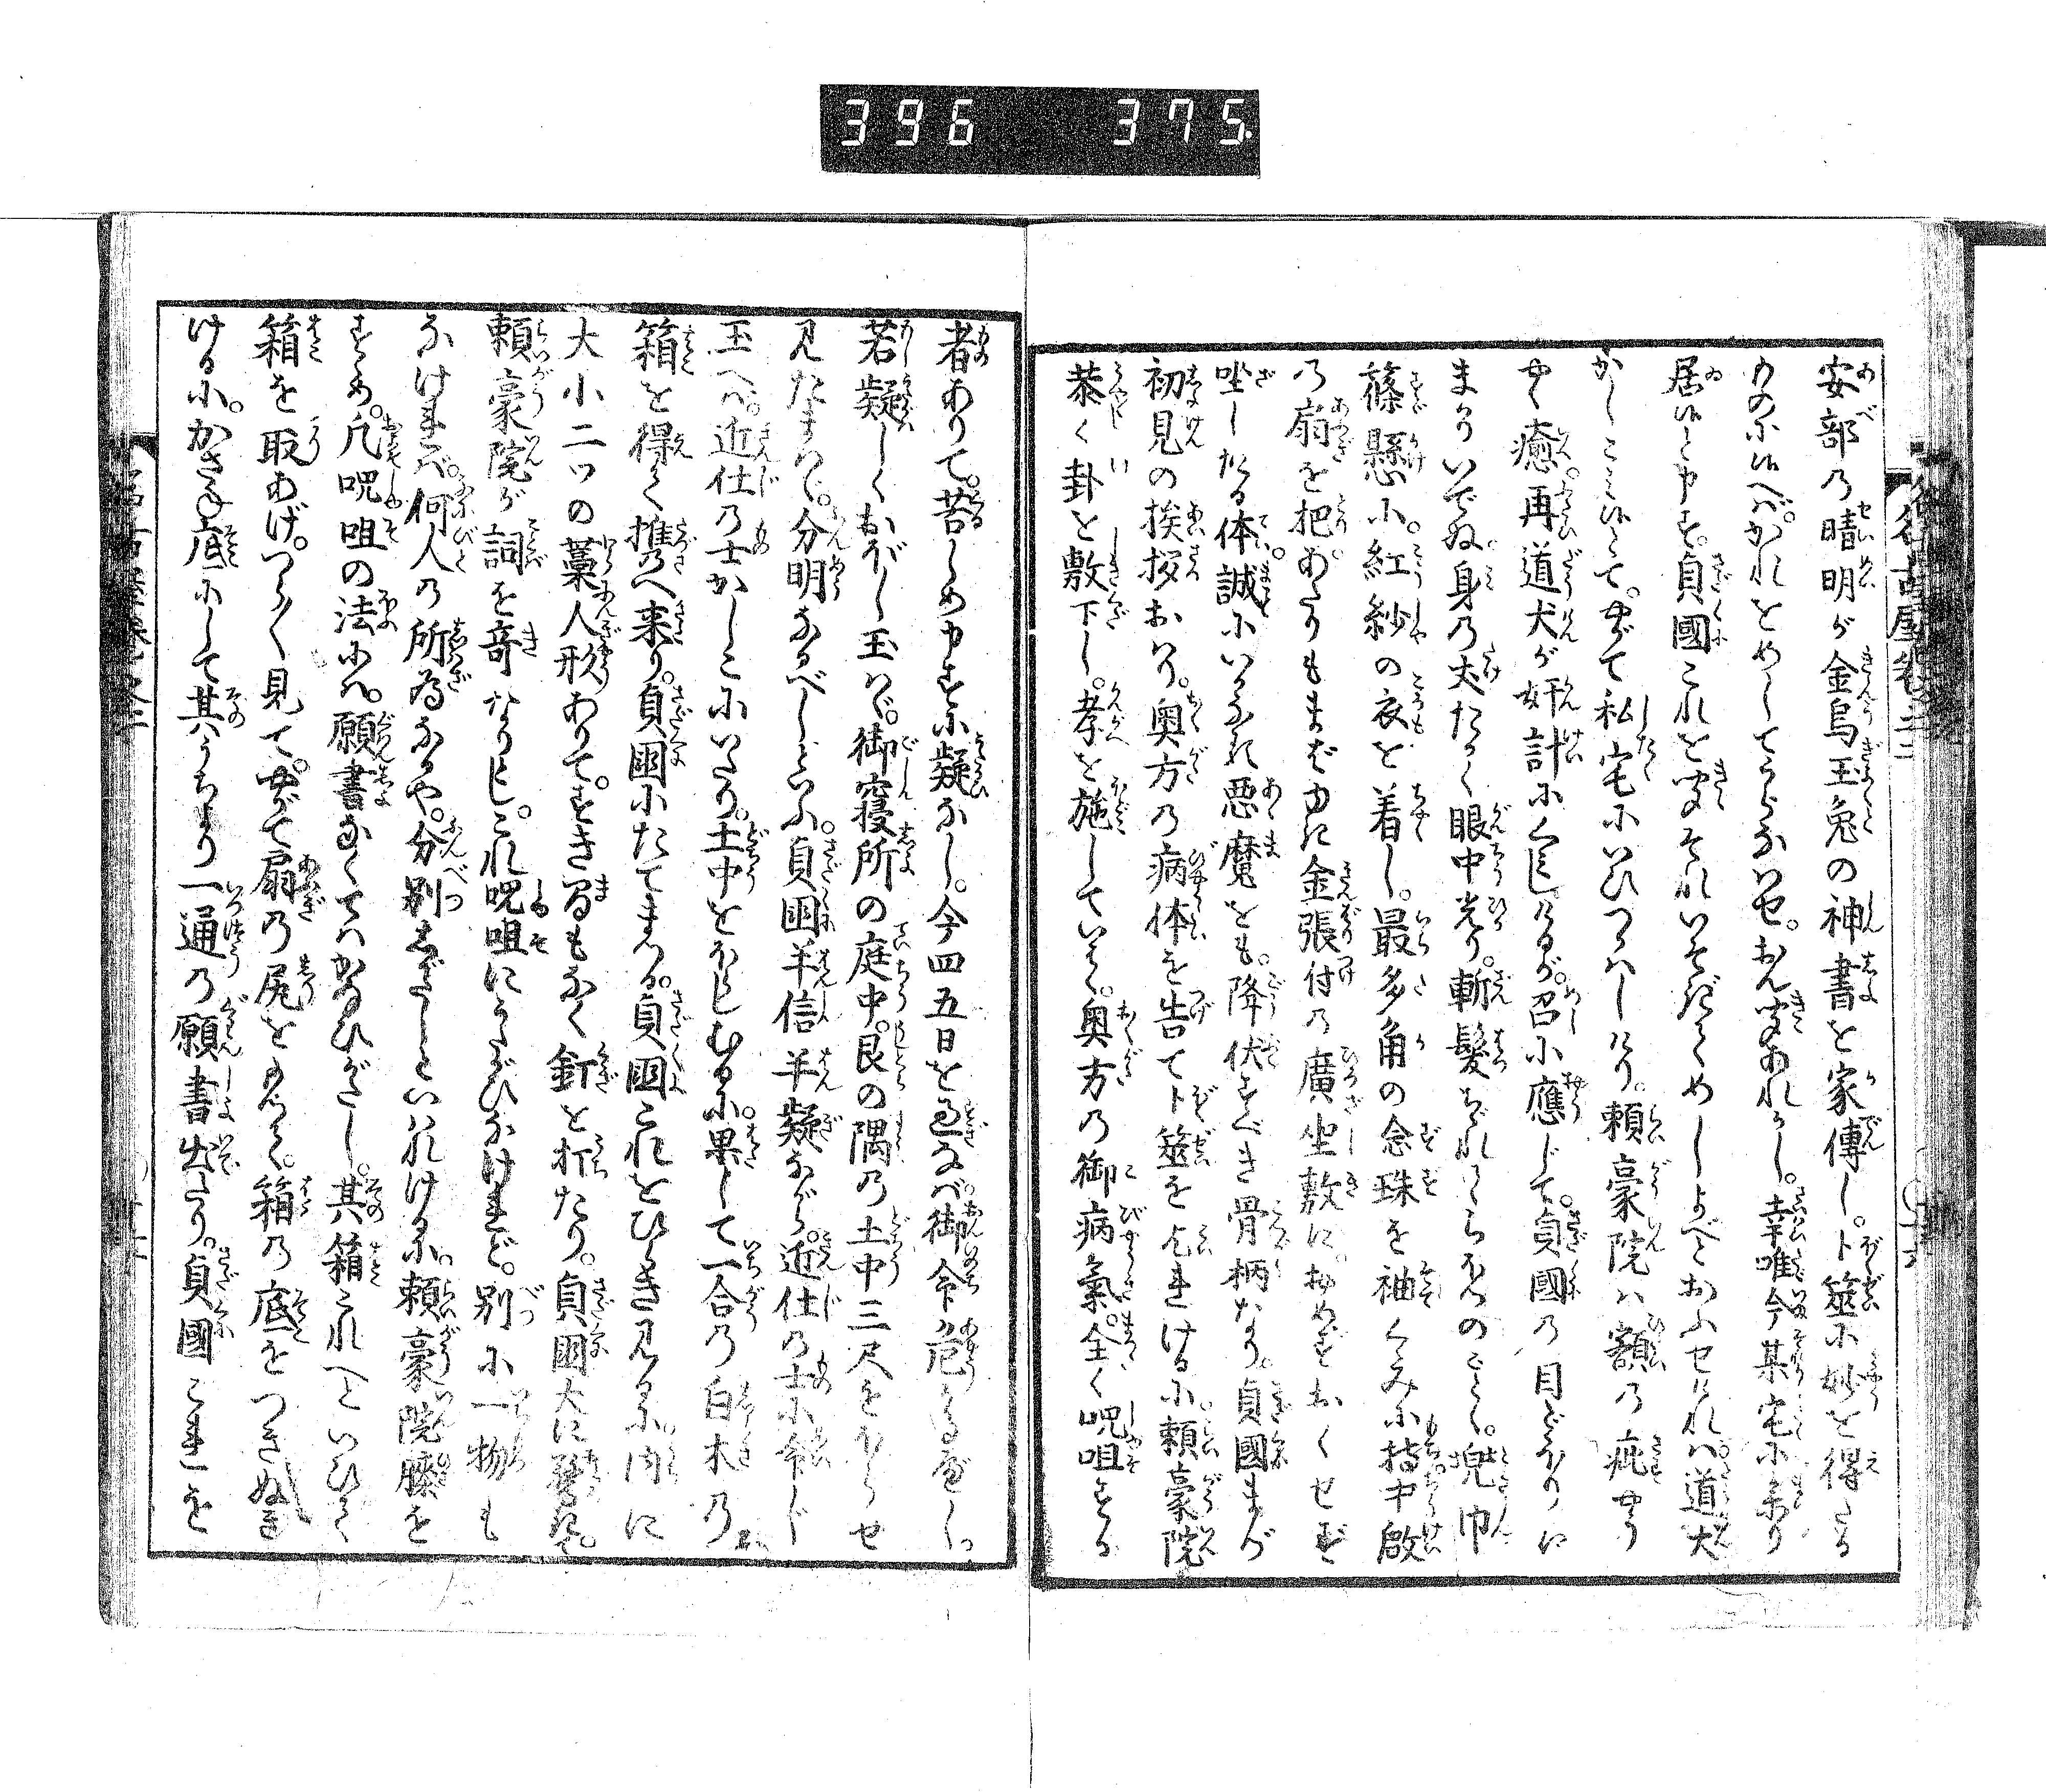 396 375.
安部乃晴明が金烏玉兎の神書を家傳し。卜筮に妙を得たる
ものに候へば。かれをめしてうらなはせ。おん聞あれかし。幸唯今某宅に参り
居候と申す。貞國これを聞それいそぎてめしよべとおふせければ道犬
かしこまり候とて。やがて私宅にいひつかはしけり。頼豪院は額乃疵やう
やく癒。再道犬が奸計にくみしけるが。召に應じて。貞國の目どほりに
まかりいでぬ。身乃丈たかく眼中光り。斬髪ちゞれてらほつのごとく。兜巾
篠懸に。紅紗の衣を着し。最多角の念珠を袖くみに持。中啟
乃扇を把。あたりもまばゆき金張付乃廣坐敷に。おめずおくせず
坐したる体。誠にいかなる悪魔をも。降伏すべき骨柄なり。貞國まづ
初見の挨拶おはり。奥方乃病体を告て卜筮を乞れけるに。頼豪院
恭く卦を敷下し。考を施していはく。奥方乃御病氣。全く呪咀する
者ありて。苦しめ申すに疑なし。今四五日を過なば。御命も危かるべし。
若疑しくおぼし玉はゞ。御寝所の庭中。艮の隅乃土中三尺をほらせ
見たまはゞ。分明なるべしといふ。貞國半信半疑ながら。近仕乃士に命じ
玉へば。近仕乃士かしこにいたり。土中をほらしむるに。果して一合乃白木乃
箱を得て携へ来り。貞國にたてまつる。貞國これをひらき見るに。内に
大小二ツの藁人形ありて。すき間もなく釘を打たり。貞國大に驚き。
頼豪院が詞を竒なりとし。これ呪咀にうたがひなけれど。別に一物も
なければ。何人乃所為なるや。分別しがたしといはれけるに。頼豪院膝を
すゝめ。凡呪咀の法には。願書なくてはかなひがたし。其箱これへといひて
箱を取あげ。つら〳〵見て。やがて扇乃尻をもつて。箱乃底をつきぬき
けるに。かさね底にして其うちより一通乃願書出たり。貞國これを